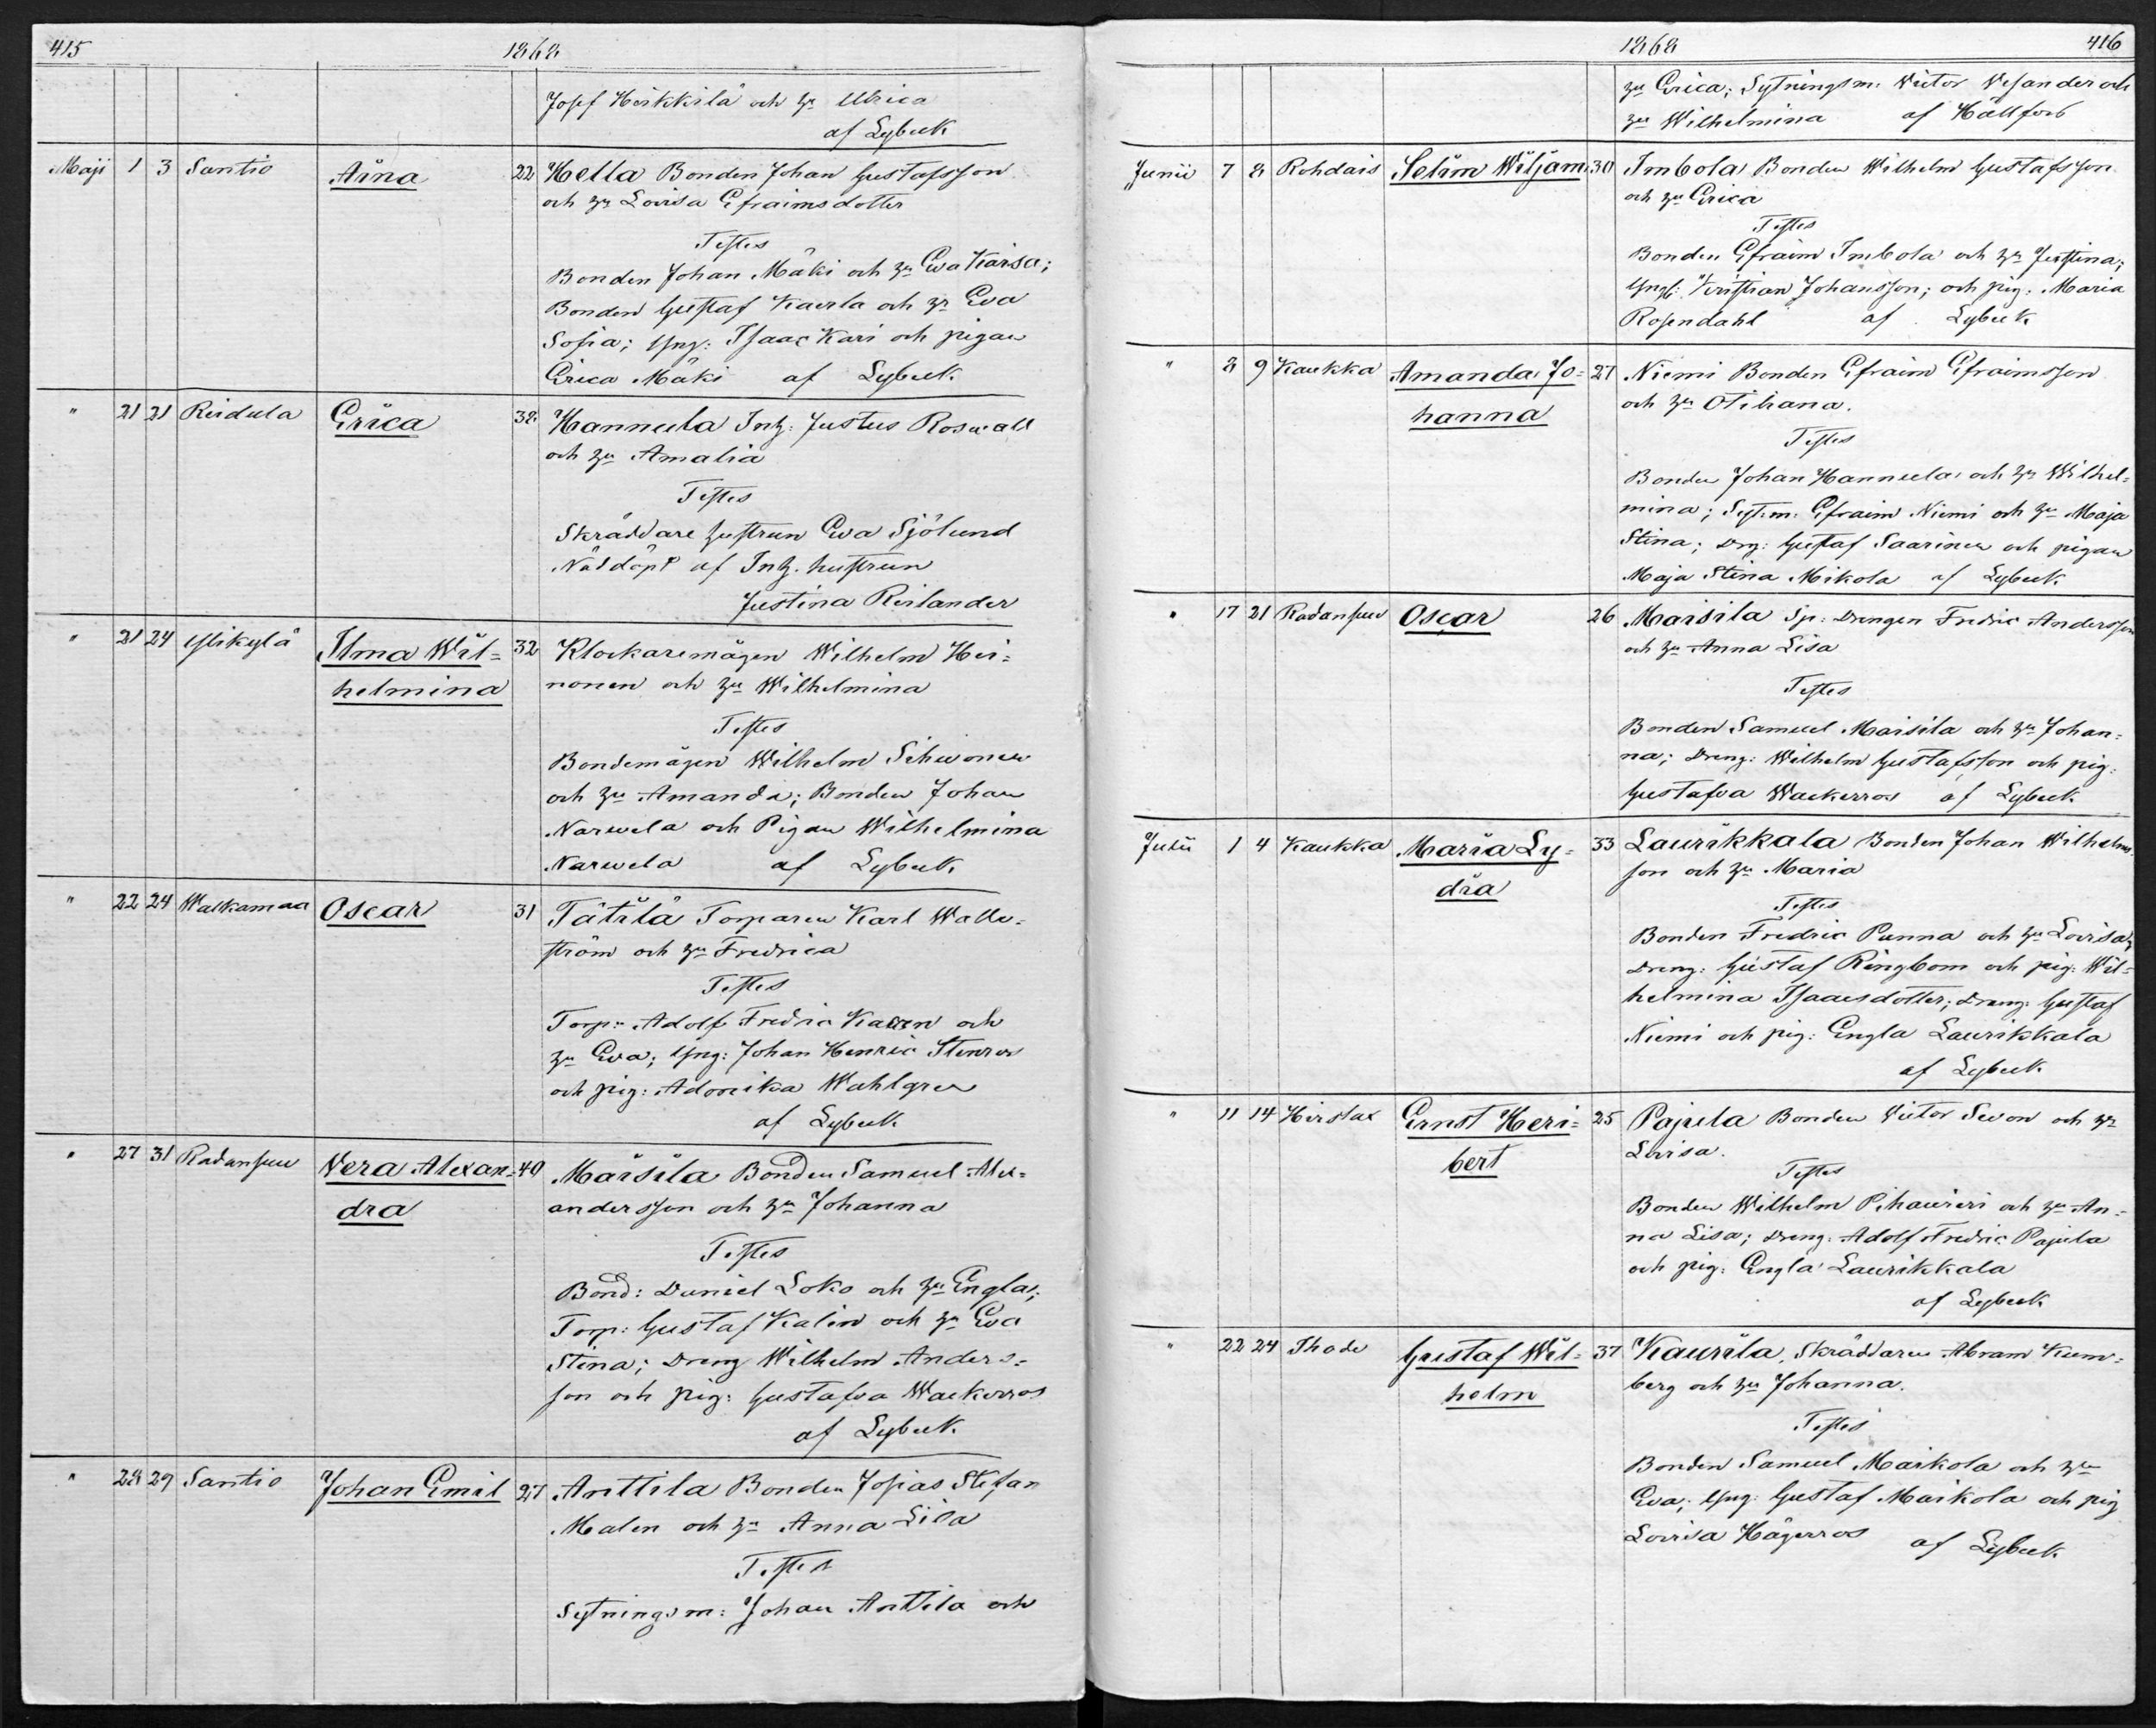 415
1868
Josef Heikkilä och hu Ulrica
af Lybeck
Maji 1 3 Santio Aina 22 Hella Bonden Johan Gustafsson
och hu Lovisa Efraimsdotter
Testes
Bonden Johan Mäki och hu Eva Kaisa;
Bonden Gustaf Kaerla och hu Eva
Sofia; Yng: Isaac Kari och pigan
Erica Mäki af Lybeck
" 21 21 Reidula Erica 38 Hannula Inh: Justus Roswall
och hu Amalia
Testes
Skräddare hustrun Eva Sjölund
Nöddöpt af Inh. hustrun
Justina Reilander
" 21 24 Ylikylä Ilma Wil= 32 Klockaremågen Wilhelm Hei=
helmina nonen och hu Wilhelmina
Testes
Bondemågen Wilhelm Sihvonen
och hu Amanda; Bonden Johan
Narwela och Pigan Wilhelmina
Narwela af Lybeck
" 22 24 Walkamaa Oscar 31 Tätilä Torparen Karl Walle=
ström och hu Fredrica
Testes
Torp: Adolf Fredric Kaven och
hu Eva; Yng: Johan Henric Stenros
och pig: Adorika Wahlgren
af Lybeck
" 27 31 Radansuu Vera Alexan= 40 Maisila Bonden Samuel Alex=
dra andersson och hu Johanna
Testes
Bond: Daniel Loko och hu Engla;
Torp: Gustaf Kalin och hu Eva
Stina; Dreng Wilhelm Anders=
son och pig: Gustafva Wackerros
af Lybeck
" 28 29 Santio Johan Emil 27 Anttila Bonden Josias Stefan
Malen och hu Anna Lisa
Testes
Sytningsm: Johan Anttila och
1868
416
hu Erica; Sytningsm: Victor Vesander och
hu Wilhelmina af Hällfors
Junii 7 8 Rohdais Selim Wiljam 30 Imbola Bonden Wilhelm Gustafsson
och hu Erica
Testes
Bonden Efraim Imbola och hu Justina;
Yngl: Kristian Johansson; och pig: Maria
Rosendahl af Lybeck
" 8 9 Kaukka Amanda Jo= 27 Niemi Bonden Efraim Efraimsson
hanna och hu Otiliana.
Testes
Bonden Johan Hannula och hu Wilhel=
mina; Syt.m. Efraim Niemi och hu Maja
Stina; Drg: Gustaf Saarinen och pigan
Maja Stina Mikola af Lybeck
" 17 21 Radansuu Oscar 26 Maisila Sp: Drengen Fredric Andersson
och hu Anna Lisa
Testes
Bonden Samuel Maisila och hu Johan=
na; Dreng: Wilhelm Gustafsson och pig:
Gustafva Wackerros af Lybeck
Julii 1 4 Kaukka Maria Ly= 33 Laurikkala Bonden Johan Wilhelms
dia son och hu Maria
Testes
Bonden Fredric Punna och hu Lovisa;
Dreng: Gustaf Ringbom och pig: Wil=
helmina Isaacsdotter; Dreng: Gustaf
Niemi och pig: Engla Laurikkala
af Lybeck
" 11 14 Hirslax Ernst Heri= 25 Pajula Bonden Victor Sevon och hu
bert Lovisa.
Testes
Bonden Wilhelm Pihauveri och hu An=
na Lisa; Dreng: Adolf Fredric Pajula
och pig: Engla Laurikkala
af Lybeck
" 22 24 Thode Gustaf Wil= 37 Kaurila, Skräddaren Abram Kum=
helm berg och hu Johanna.
Testes
Bonden Samuel Maikola och hu
Eva; Yng: Gustaf Maikola och pig
Lovisa Hägerros af Lybeck